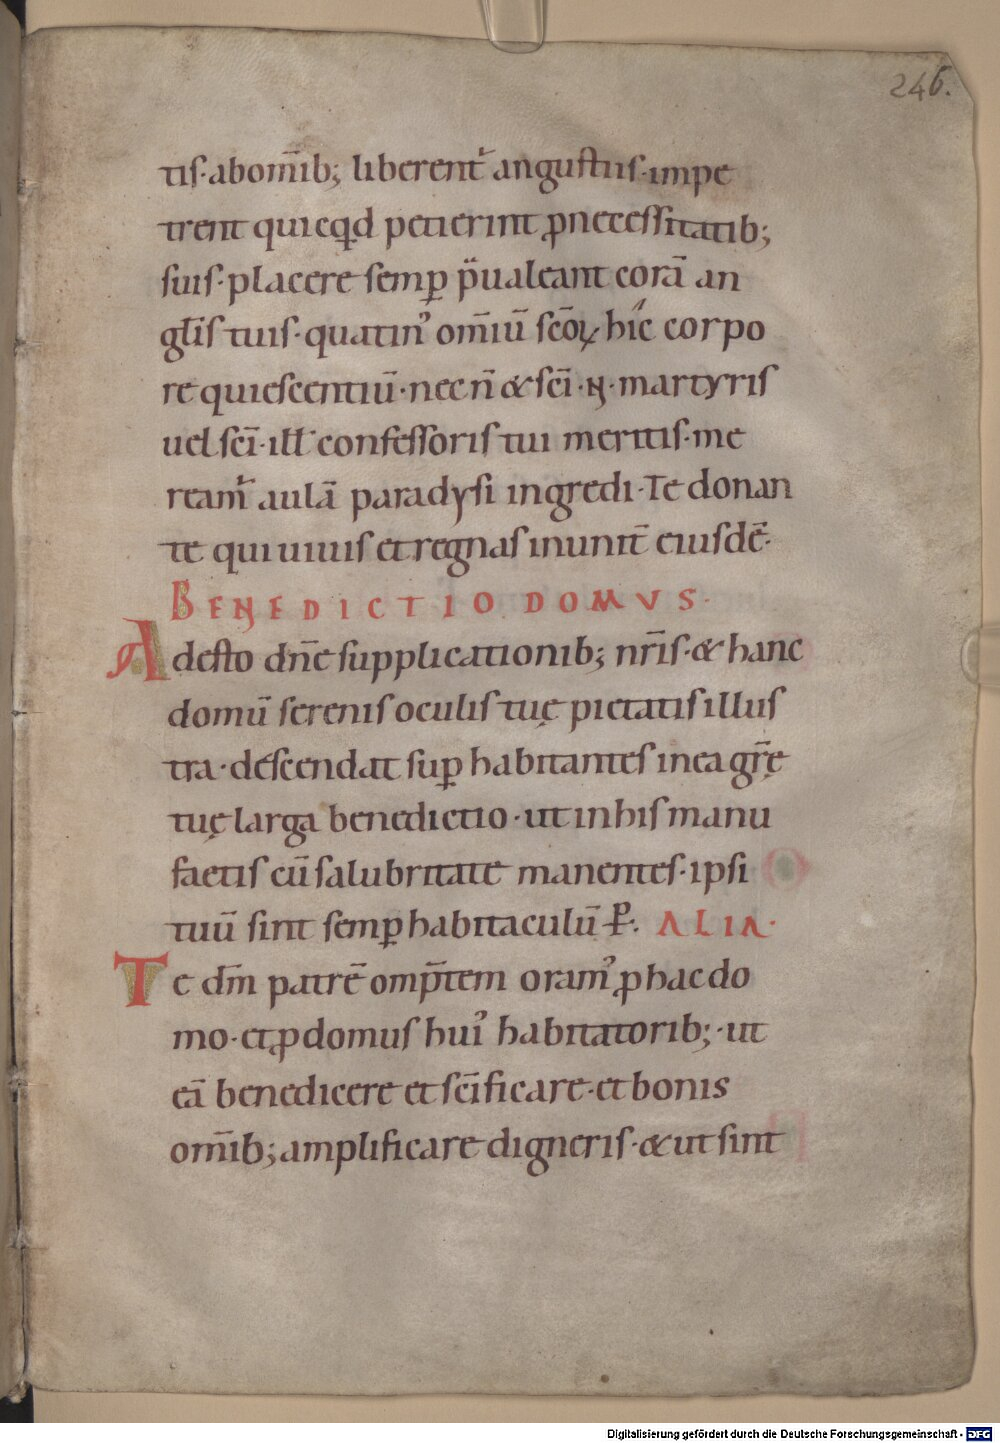 246.
tis·abom̅ib; liberent᷑ angustiis·impe
trent quicq̣d petierint ꝓnecessitatib;
suis·placere semꝑ p̈ualeant corā an
gl̅is tuis·quatin᾽ om̅iū sc̅oꝝ híc corpo
re quiescentiū·necn̅ & sc̅i·N·martyris
uel sc̅i·ill̅ confessoris tui meritis·me
ream᷑ aulā paradysi ingredi·Te donan
te qui uiuis et regnas inunit̅ eiusdē·
BENEDICTIO DOMVS·
Adesto dn̅e supplicationib; nr̅is·& hanc
domū serenis oculis tuę pietatis illus
tra·descendat suꝑ habitantes inea gr̅ę
tuę larga benedictio·ut inhis manu
factis cū salubritate manentes·ipsi
tuū sint semꝑ habitaculū P̵·ALIA·
Te dm̅ patrē omp̅tem oram᾽ ꝓ hac do
mo·et ꝓ domus hui᾽ habitatorib;·ut
eā benedicere et sc̅ificare·et bonis
om̅ib; amplificare digneris·& ut sint
Digitalisierung gefördert durch die Deutsche Forschungsgemeinschaft - DFG